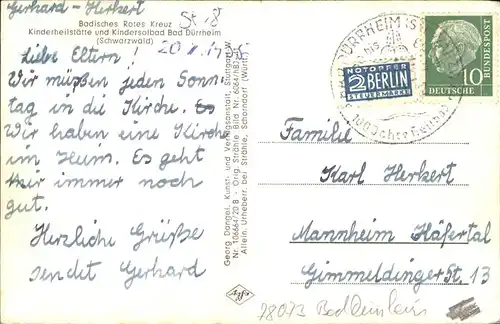 Gerhard - Herkert
Badisches Rotes Kreuz
Kinderheilstätte und Kindersolbad Bad Dürrheim
(Schwarzwald)
Liebe Eltern!
Wir müßen jeden Sonn-
tag in die Kirche. Es
Wir haben eine Kirche
im Heim. Es geht
mir immer noch
gut.
Herzliche Grüße
sendet Gerhard
Georg Dangel, Kunst- und Verlagsanstalt, Stuttgart-W.
Allein. Urheberr. bei Strähle, Schorndorf (Württ.)
DÜRRHEIM
NOTOPFER
2 BERLIN
STEUERMARKE
10
DEUTSCHE
BUNDESPOST
Familie
Karl Herkert
Mannheim Käfertal
Gimmeldinger St. 13
78073